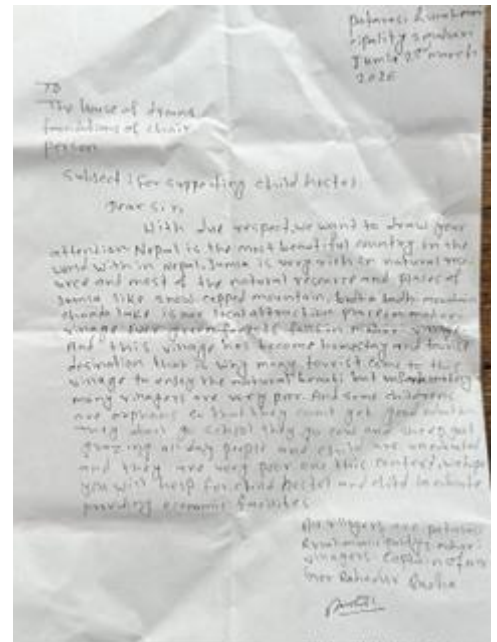 Patarasi Rural mun
cipality 2 mahari
Jumla 25 march
2026
TO
The house of dreams
foundations of chair
person
Subject : for supporting child hostel.
Dear Sir,
With due respect, we want to draw your
attention Nepal is the most beautiful country in the
world with in Nepal. Jumla is very rich in natural resou
rce and most of the natural resource and places of
Jumla like snow capped mountain,
lake is our local attraction place in
village ever green forests
And this village has become homestay and
destination that is why many tourist come to this
village to enjoy the natural but
many villagers are very poor. And some childrens
are orphans so that they can't get good
They don't go school they go cow and sheep
grazing all day people and child are uneducated
and they are very poor one this context, we hope
you will help for child hostel and
providing economic facilites
All villagers are patarasi
villagers Captain of
Bahadur